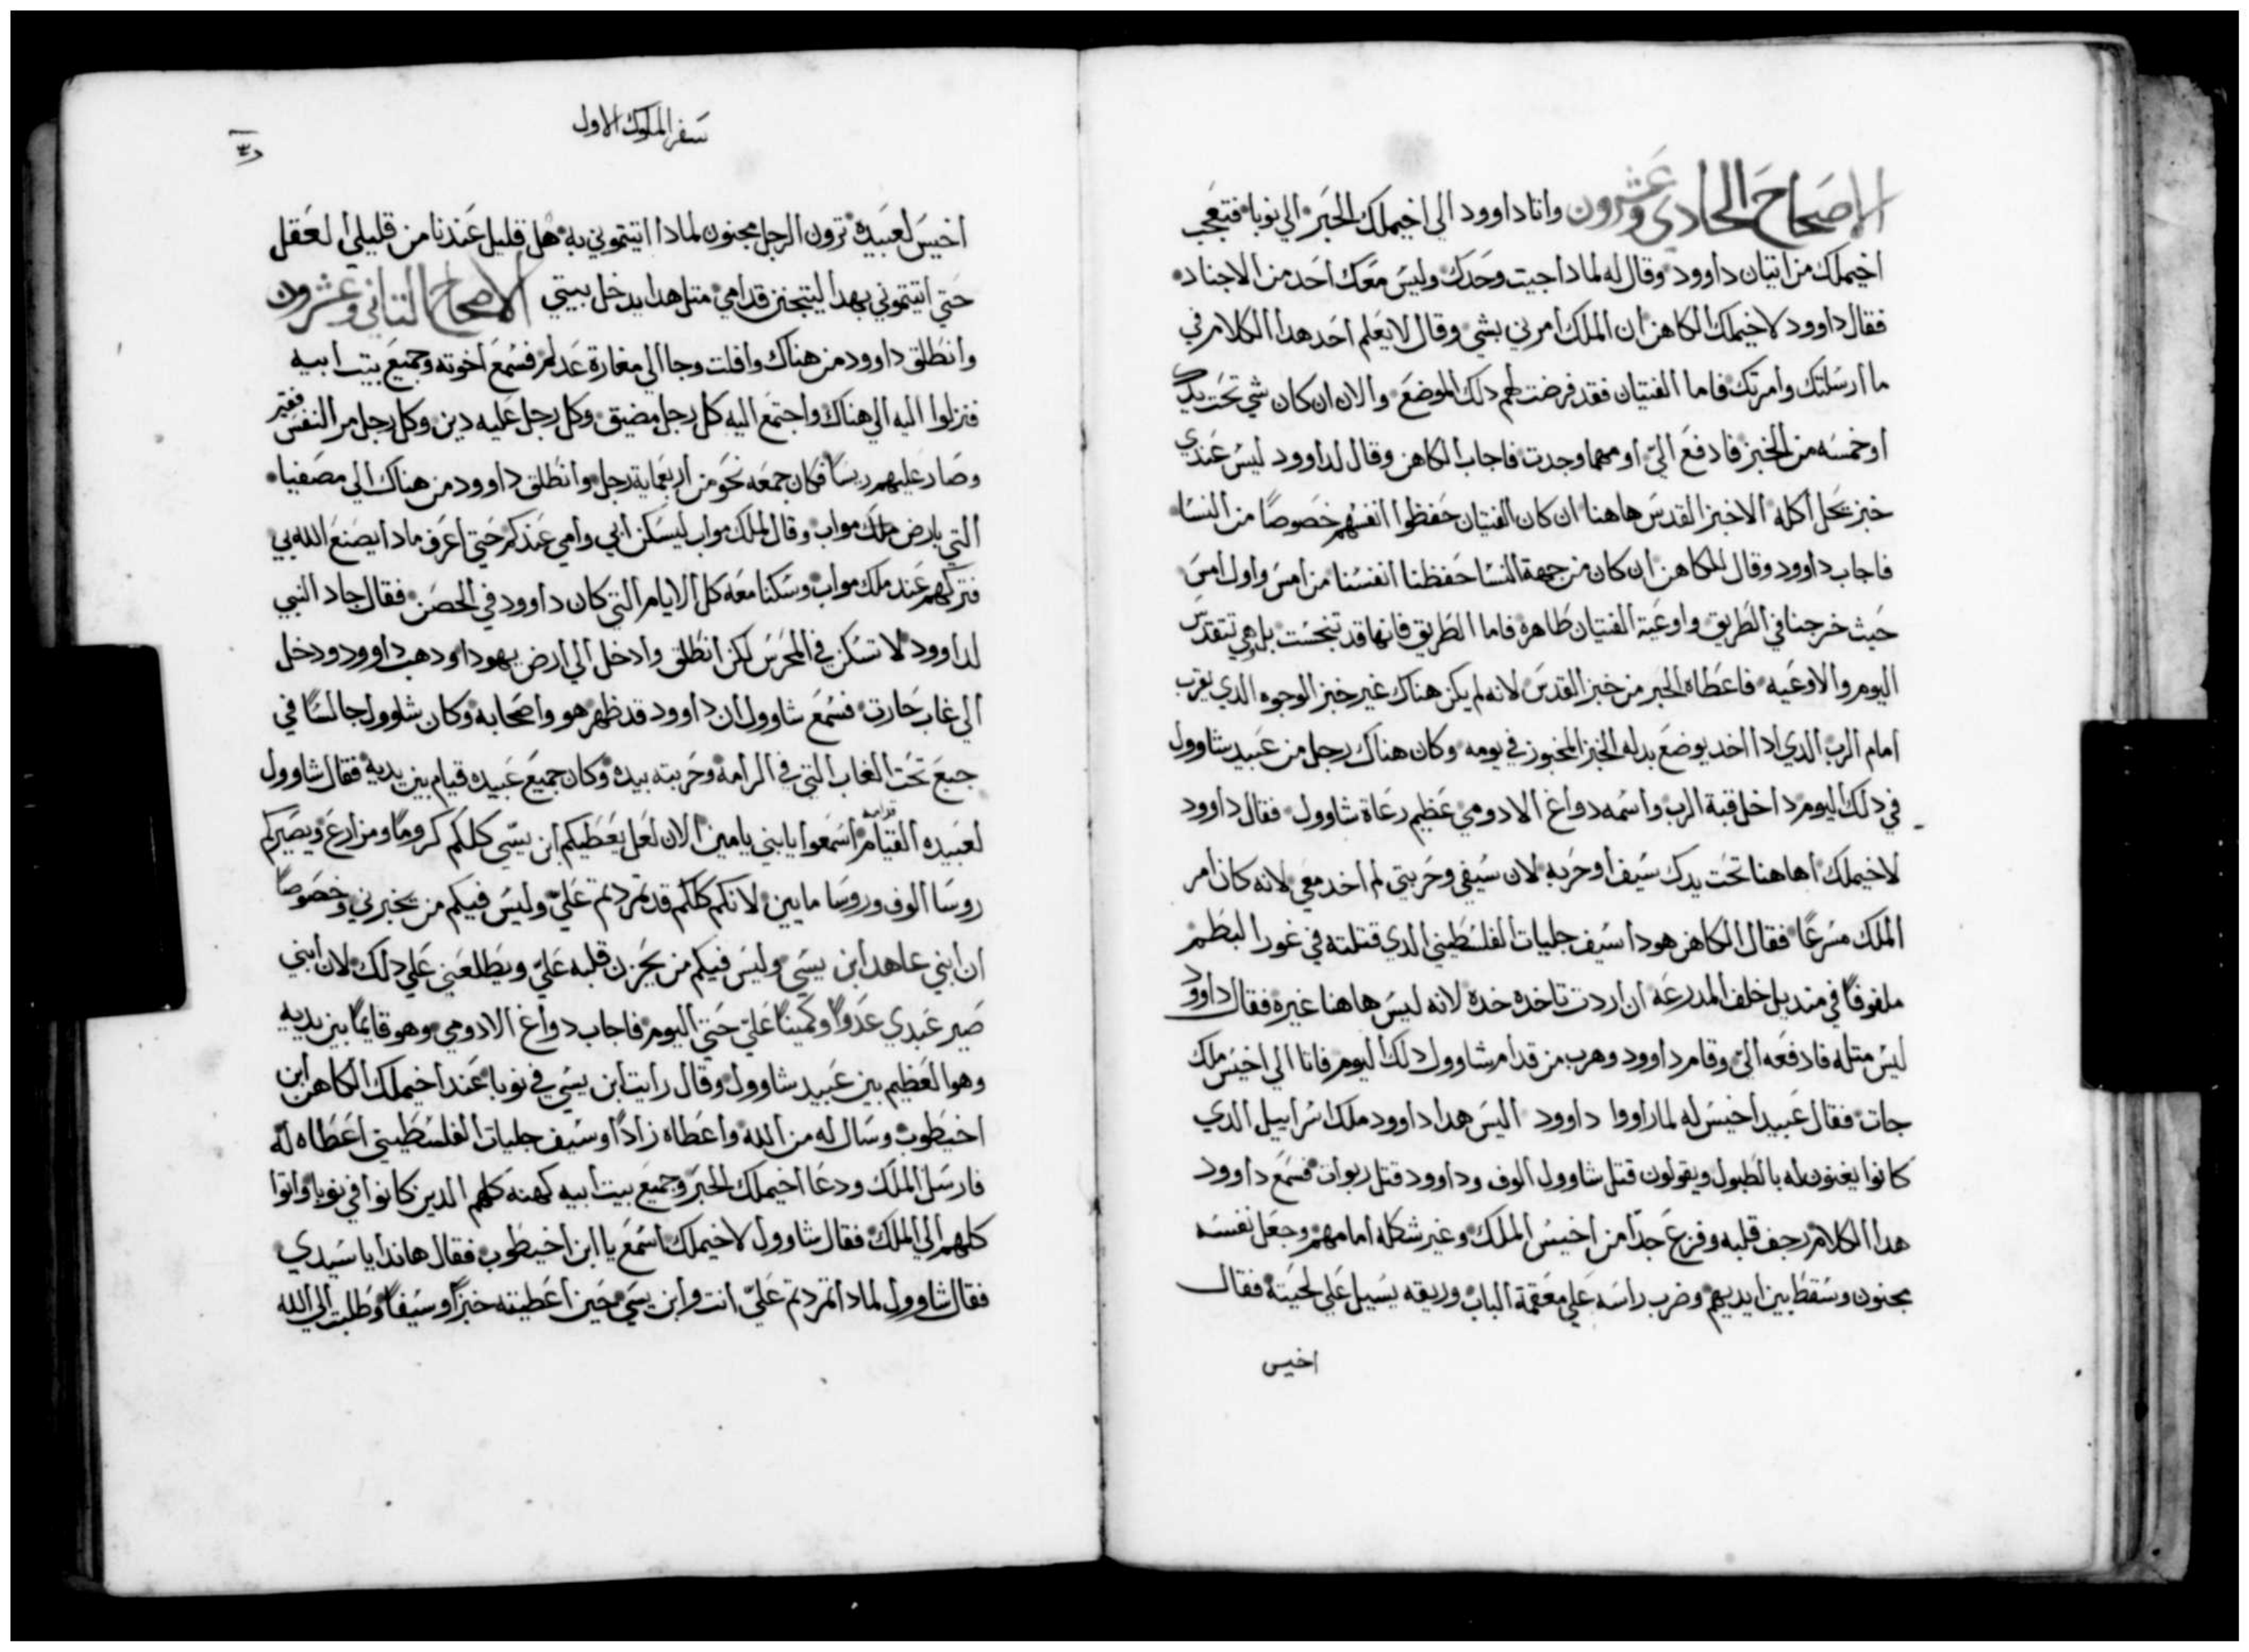 الاصحاح الحادي وعشرون واتا داوود الي اخيملك الحبر الي نوبا فتعجب
اخيملك من اتيان داوود وقال له لمادا جيت وحدك وليس معك احد من الاجناد
فقال داوود لاخيملك الكاهن ان الملك امرني بشي وقال لا يعلم احد هدا الكلام في
ما ارسلتك وامرتك فاما الفتيان فقد فرضت لهم دلك الموضع والان ان كان شي تحت يدك
او خمسه من الخبز فادفع الي او مهما وجدت فاجاب الكاهن وقال لداوود ليس عندي
خبز يحل اكله الا خبز القدس هاهنا ان كان الفتيان حفظوا انفسهم خصوصًا من النسا
فاجاب داوود وقال للكاهن ان كان من جهة النسا حفظنا انفسنا من امس واول امس
حيث خرجنا في الطريق واوعية الفتيان طاهرة فاما الطريق فانها قد تنجست بل هي تتقدس
اليوم والاوعيه فاعطاه الحبر من خبز القدس لانه لم يكن هناك غير خبز الوجوه الدي يقرب
امام الرب الدي ادا اخد يوضع بدله الخبز المخبوز في يومه وكان هناك رجل من عبيد شاوول
في دلك اليوم داخل قبة الرب واسمه دواغ الادومي عظيم رعاة شاوول فقال داوود
لاخيملك اهاهنا تحت يدك سيف او حربه لان سيفي وحربتي لم اخد معي لانه كان امر
الملك مسرعًا فقال الكاهن هودا سيف جليات الفلسطيني الدي قتلته في غور البطم
ملفوفًا في منديل خلف المدرعه ان اردت تاخده خده لانه ليس هاهنا غيره فقال داوود
ليس متله فادفعه الي وقام داوود وهرب من قدام شاوول دلك اليوم فاتا الي اخيس ملك
جات فقال عبيد اخيس له لما راووا داوود اليس هدا داوود ملك اسراييل الدي
كانوا يغنون له بالطبول ويقولون قتل شاوول الوف وداوود قتل ربوات فسمع داوود
هدا الكلام رجف قلبه وفزع جدًا من اخيس الملك وغير شكله امامهم وجعل نفسه
مجنون وسقط بين ايديهم وضرب راسه علي معقمة الباب وريقه يسيل علي لحيته فقال
اخيس
سفر الملوك الاول
اخيس لعبيده ترون الرجل مجنون لمادا اتيتموني به هل قليل عندنا من قليلي العقل
حتي اتيتموني بهدا ليتجنن قدامي متل هدا يدخل بيتي الاصحاح التاني وعشرون
وانطلق داوود من هناك وافلت وجا الي مغارة عدلم فسمع اخوته وجميع بيت ابيه
فنزلوا اليه الي هناك واجتمع اليه كل رجل مضيق وكل رجل عليه دين وكل رجل مر النفس فقير
وصار عليهم ريسًا فكان جمعه نحو من اربعماية رجل وانطلق داوود من هناك الي مصفيا
التي بارض ملك مواب وقال لملك مواب ليسكن ابي وامي عندكم حتي اعرف مادا يصنع الله بي
فتركهم عند ملك مواب وسكنا معه كل الايام التي كان داوود في الحصن فقال جاد النبي
لداوود لا تسكن في المحرس لكن انطلق وادخل الي ارض يهودا ودهب داوود ودخل
الي غاب حارت فسمع شاوول ان داوود قد ظهر هو واصحابه وكان شاوول جالسًا في
جبع تحت الغاب التي في الرامة وحربته بيده وكان جميع عبيده قيام بين يديه فقال شاوول
لعبيده القيام قدامه اسمعوا يا بني يامين الان لعل يعطيكم ابن يسي كلكم كرومًا ومزارع ويصيركم
روسا الوف وروسا مايين لانكم كلكم قد تمردتم علي وليس فيكم من يخبرني وخصوصًا
ان ابني عاهد ابن يسي وليس فيكم من يحزن قلبه علي ويطلعني علي دلك لان ابني
صير عبدي عدوًا وكمينًا علي حتي اليوم فاجاب دواغ الادومي وهو قايمًا بين يديه
وهو العظيم بين عبيد شاوول وقال رايت ابن يسي في نوبا عند اخيملك الكاهن ابن
اخيطوب وسال له من الله واعطاه زادًا وسيف جليات الفلسطيني اعطاه له
فارسل الملك ودعا اخيملك الحبر وجميع بيت ابيه كهنه كلهم الدين كانوا في نوبا واتوا
كلهم الي الملك فقال شاوول لاخيملك اسمع يا ابن اخيطوب فقال هاندا يا سيدي
فقال شاوول لمادا تمردتم علي انت وابن يسي حين اعطيته خبزًا وسيفًا وطلبت الي الله